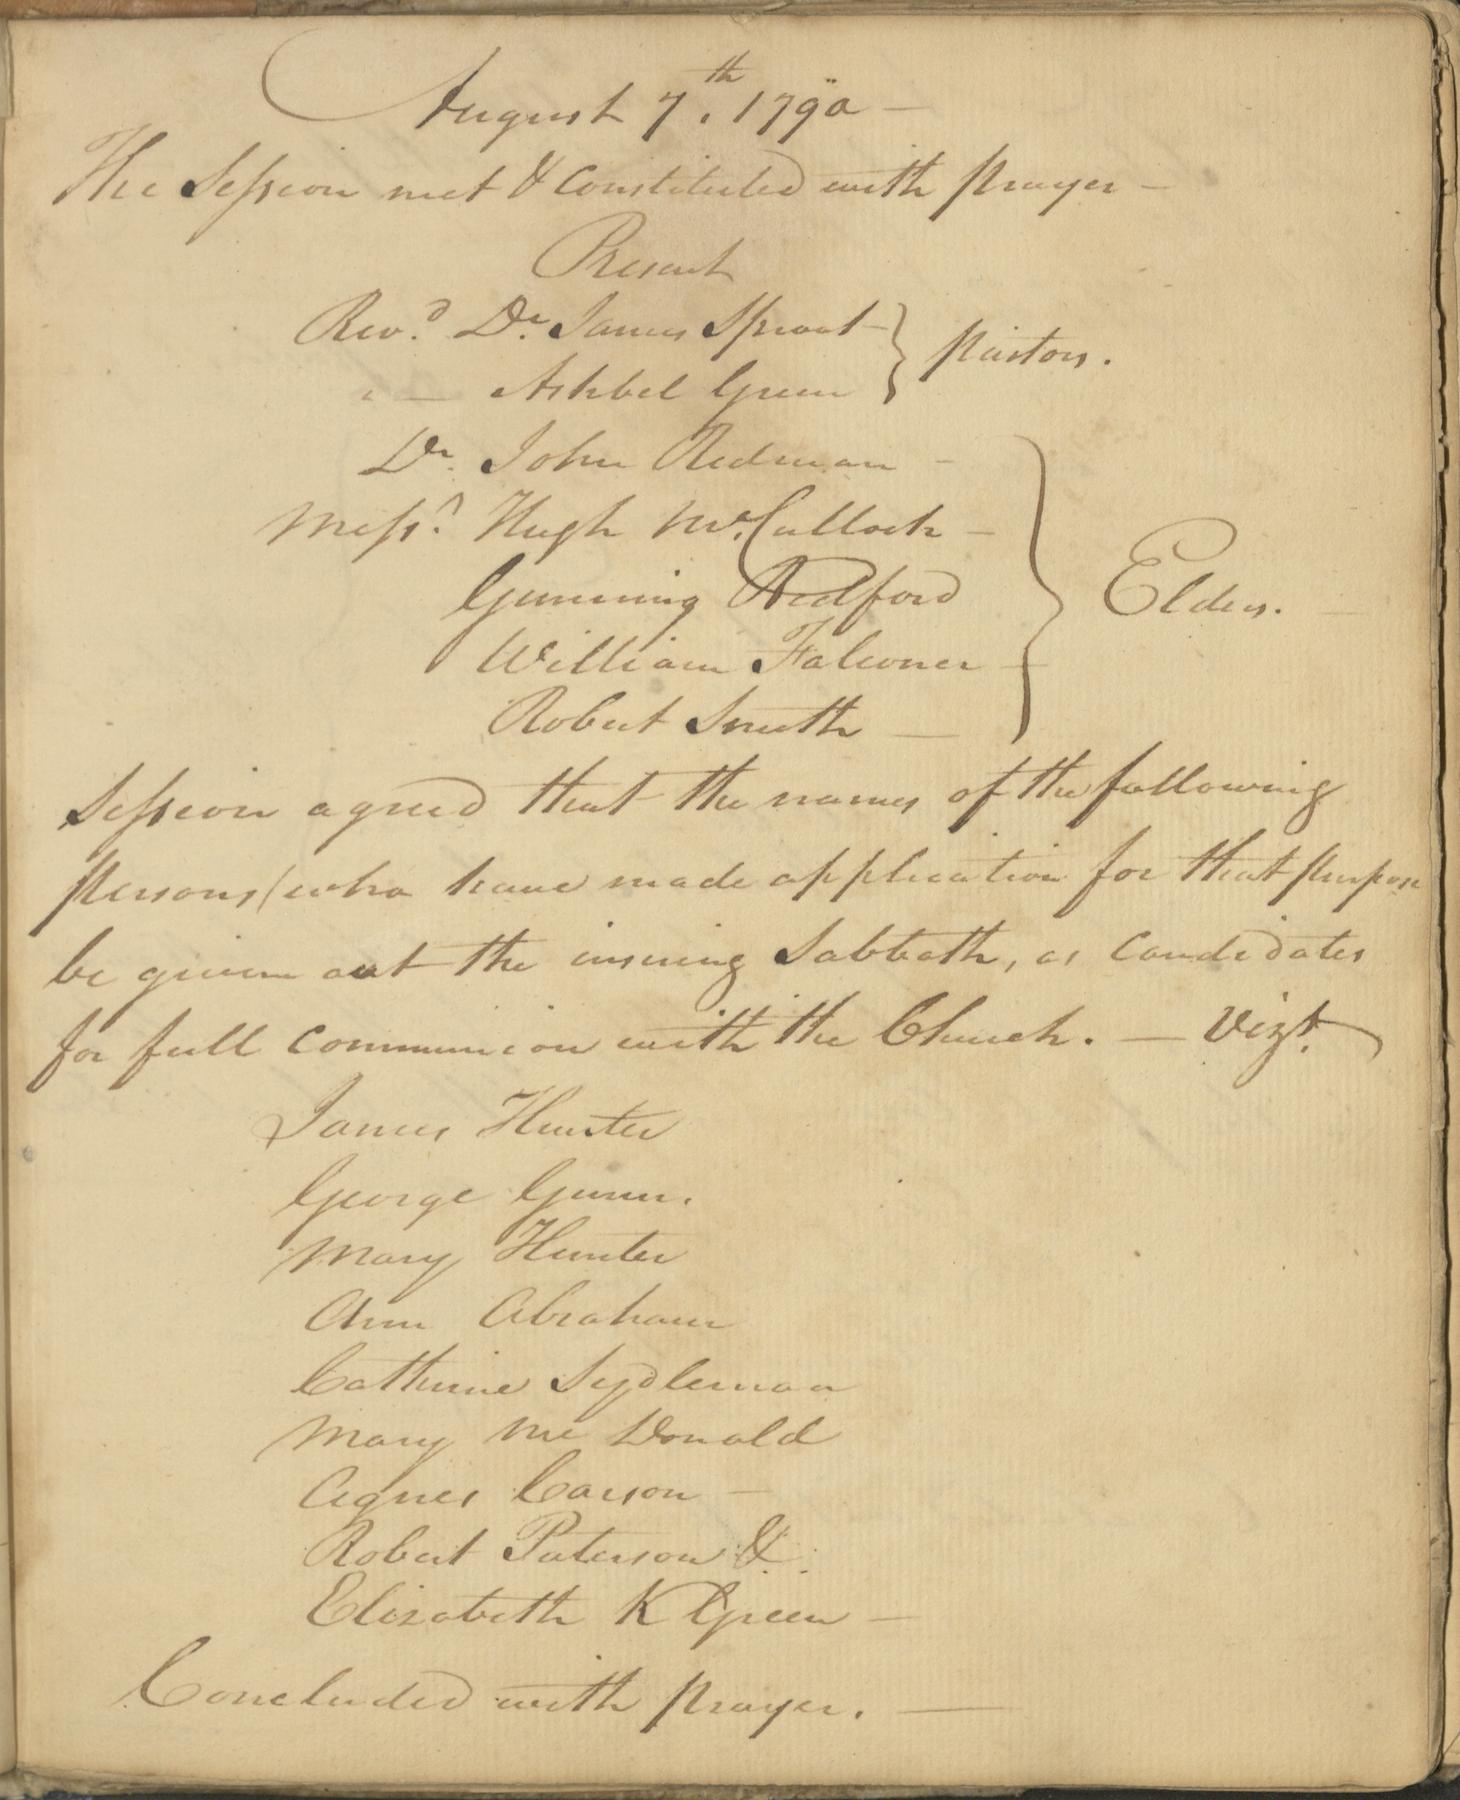 August 7th. 1790 —
The Session met & Constituted with prayer —
Present
Revd. Dr. James Sproat — } pastors.
" — Ashbel Green
Dr. John Redman —
Messrs. Hugh McCullock —
Gunning Bedford } Elders. —
William Falconer —
Robert Smith —
Session agreed that the names of the following
persons (who have made application for that purpose
be given out the insuing Sabbath, as Candidates
for full communion with the Church. — Vizt.
James Hunter
George Gunn.
Mary Hunter
Ann Abraham
Catherine Sydleman
Mary Mc Donald
Agnes Carson —
Robert Paterson &
Elizabeth K Green —
Concluded with prayer. —